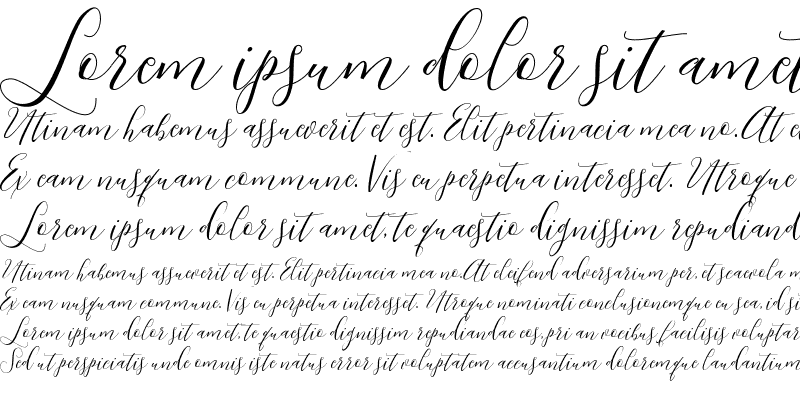 Lorem ipsum dolor sit amet
Utinam habemus assueverit et est. Elit pertinacia mea no. At e
Ex eam nusquam commune. Vis eu perpetua interesset. Utroque
Lorem ipsum dolor sit amet, te quaestio dignissim repudiand
Utinam habemus assueverit et est. Elit pertinacia mea no. At eleifend adversarium per, et scaevola m
Ex eam nusquam commune. Vis eu perpetua interesset. Utroque nominati conclusionemque eu sea, id si
Lorem ipsum dolor sit amet, te quaestio dignissim repudiandae eos, pri an vocibus facilisis voluptar
Sed ut perspiciatis unde omnis iste natus error sit voluptatem accusantium doloremque laudantium